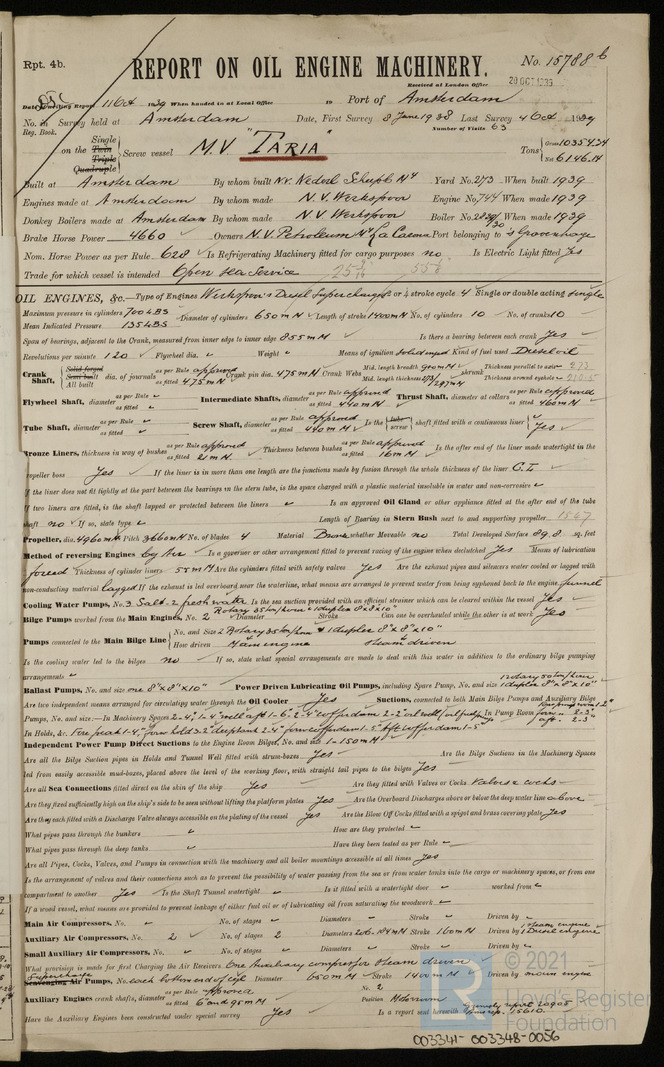 Rpt. 4b.
REPORT ON OIL ENGINE MACHINERY.
No. 15788 b
Received at London Office
20 OCT 1939
Date of writing Report 11 Oct 1939 When handed in at Local Office 19 Port of Amsterdam
No. in Survey held at Amsterdam Date, First Survey 3 June 1938 Last Survey 4 Oct 1939
Reg. Book. Number of Visits 63
Single
on the Twin Screw vessel M.V. "TARIA" Tons Gross 10354.34
Triple
Quadruple Net 6146.14
Built at Amsterdam By whom built N.V. Nederl Scheepb Mij Yard No. 273 When built 1939
Engines made at Amsterdam By whom made N.V. Werkspoor Engine No. 744 When made 1939
Donkey Boilers made at Amsterdam By whom made N.V. Werkspoor Boiler No. When made 1939
Brake Horse Power 4660 Owners N.V. Petroleum Mij La Corona Port belonging to 's Gravenhage
Nom. Horse Power as per Rule 628 Is Refrigerating Machinery fitted for cargo purposes no Is Electric Light fitted Yes
Trade for which vessel is intended Open Sea Service
OIL ENGINES, &c.—Type of Engines Werkspoor's Diesel Supercharged 2 or 4 stroke cycle 4 Single or double acting single
Maximum pressure in cylinders 700 LBS Diameter of cylinders 650 mM Length of stroke 1400 mM No. of cylinders 10 No. of cranks 10
Mean Indicated Pressure 135 LBS
Span of bearings, adjacent to the Crank, measured from inner edge to inner edge 855 mM Is there a bearing between each crank Yes
Revolutions per minute 120 Flywheel dia. Weight Means of ignition Kind of fuel used Diesel oil
Crank Shaft, Solid forged Semi built All built dia. of journals as per Rule approved as fitted 475 mM Crank pin dia. 475 mM Crank Webs Mid. length breadth 900 mM Mid. length thickness 297 mM shrunk Thickness parallel to axis 273 Thickness around eyehole
Flywheel Shaft, diameter as per Rule as fitted Intermediate Shafts, diameter as per Rule approved as fitted 440 mM Thrust Shaft, diameter at collars as per Rule approved as fitted 460 mM
Tube Shaft, diameter as per Rule as fitted Screw Shaft, diameter as per Rule approved as fitted 440 mM Is the tube screw shaft fitted with a continuous liner Yes
Bronze Liners, thickness in way of bushes as per Rule approved as fitted 21 mM. Thickness between bushes as per Rule approved as fitted 16 mM Is the after end of the liner made watertight in the
propeller boss Yes If the liner is in more than one length are the junctions made by fusion through the whole thickness of the liner C.I.
If the liner does not fit tightly at the part between the bearings in the stern tube, is the space charged with a plastic material insoluble in water and non-corrosive
If two liners are fitted, is the shaft lapped or protected between the liners Is an approved Oil Gland or other appliance fitted at the after end of the tube
shaft no If so, state type Length of Bearing in Stern Bush next to and supporting propeller
Propeller, dia. 4960 mM Pitch 3660 mM No. of blades 4 Material Bronze whether Moveable no Total Developed Surface 89.8 sq. feet
Method of reversing Engines by air Is a governor or other arrangement fitted to prevent racing of the engine when declutched Yes Means of lubrication
forced Thickness of cylinder liners 55 mM Are the cylinders fitted with safety valves Yes Are the exhaust pipes and silencers water cooled or lagged with
non-conducting material lagged If the exhaust is led overboard near the waterline, what means are arranged to prevent water from being syphoned back to the engine funnel
Cooling Water Pumps, No. 3 Salt-2 fresh water Is the sea suction provided with an efficient strainer which can be cleared within the vessel Yes
Bilge Pumps worked from the Main Engines, No. 2 Rotary 35 ton/hour & 1 duplex 8"x8"x10" Diameter Stroke Can one be overhauled while the other is at work Yes
Pumps connected to the Main Bilge Line No. and Size 2 Rotary 35 ton/hour & 1 duplex 8"x8"x10"
How driven Main engine Steam driven
Is the cooling water led to the bilges no If so, state what special arrangements are made to deal with this water in addition to the ordinary bilge pumping
arrangements
Ballast Pumps, No. and size one 8"x8"x10" Power Driven Lubricating Oil Pumps, including Spare Pump, No. and size 1 Rotary 50 ton/hour 1 duplex 8"x8"x10"
Are two independent means arranged for circulating water through the Oil Cooler Yes Suctions, connected to both Main Bilge Pumps and Auxiliary Bilge
Pumps, No. and size:—In Machinery Spaces In Pump Room
In Holds, &c.
Independent Power Pump Direct Suctions to the Engine Room Bilges, No. and size 1-150 mM
Are all the Bilge Suction pipes in Holds and Tunnel Well fitted with strum-boxes Yes Are the Bilge Suctions in the Machinery Spaces
led from easily accessible mud-boxes, placed above the level of the working floor, with straight tail pipes to the bilges Yes
Are all Sea Connections fitted direct on the skin of the ship Yes Are they fitted with Valves or Cocks Valves & cocks
Are they fixed sufficiently high on the ship's side to be seen without lifting the platform plates Yes Are the Overboard Discharges above or below the deep water line above
Are they each fitted with a Discharge Valve always accessible on the plating of the vessel Yes Are the Blow Off Cocks fitted with a spigot and brass covering plate Yes
What pipes pass through the bunkers How are they protected
What pipes pass through the deep tanks Have they been tested as per Rule
Are all Pipes, Cocks, Valves, and Pumps in connection with the machinery and all boiler mountings accessible at all times Yes
Is the arrangement of valves and their connections such as to prevent the possibility of water passing from the sea or from water tanks into the cargo or machinery spaces, or from one
compartment to another Yes Is the Shaft Tunnel watertight Is it fitted with a watertight door worked from
If a wood vessel, what means are provided to prevent leakage of either fuel oil or of lubricating oil from saturating the woodwork
Main Air Compressors, No. No. of stages Diameters Stroke Driven by
Auxiliary Air Compressors, No. 2 No. of stages 2 Diameters 206-184 mM Stroke 160 mM Driven by 1 Steam engine 1 Diesel engine
Small Auxiliary Air Compressors, No. No. of stages Diameters Stroke Driven by
What provision is made for first Charging the Air Receivers One Auxiliary compressor steam driven
Supercharge Scavenging Air Pumps, No. each bottom end of cyl. Diameter 650 mM Stroke 1400 mM Driven by main engine
Auxiliary Engines crank shafts, diameter as per Rule approved as fitted 6" and 95 mM No. 2 Position
Have the Auxiliary Engines been constructed under special survey Yes Is a report sent herewith
© 2021
Lloyd's Register
Foundation
003341-003348-0056